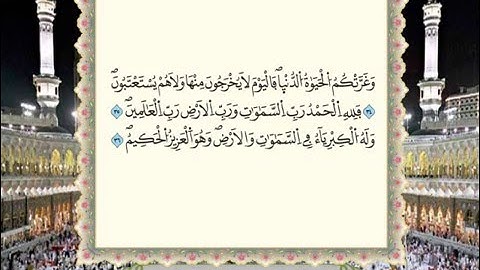 وَغَرَّتْكُمُ الْحَيٰوةُ الدُّنْيَاۚ فَالْيَوْمَ لَا يُخْرَجُونَ مِنْهَا وَلَا هُمْ يُسْتَعْتَبُونَۜ
﴿٣٤﴾ فَلِلّٰهِ الْحَمْدُ رَبِّ السَّمٰوَاتِ وَرَبِّ الْاَرْضِ رَبِّ الْعَالَمِينَۜ ﴿٣٥﴾
وَلَهُ الْكِبْرِيَٓاءُ فِي السَّمٰوَاتِ وَالْاَرْضِۖ وَهُوَ الْعَزِيزُ الْحَكِيمُۜ ﴿٣٦﴾